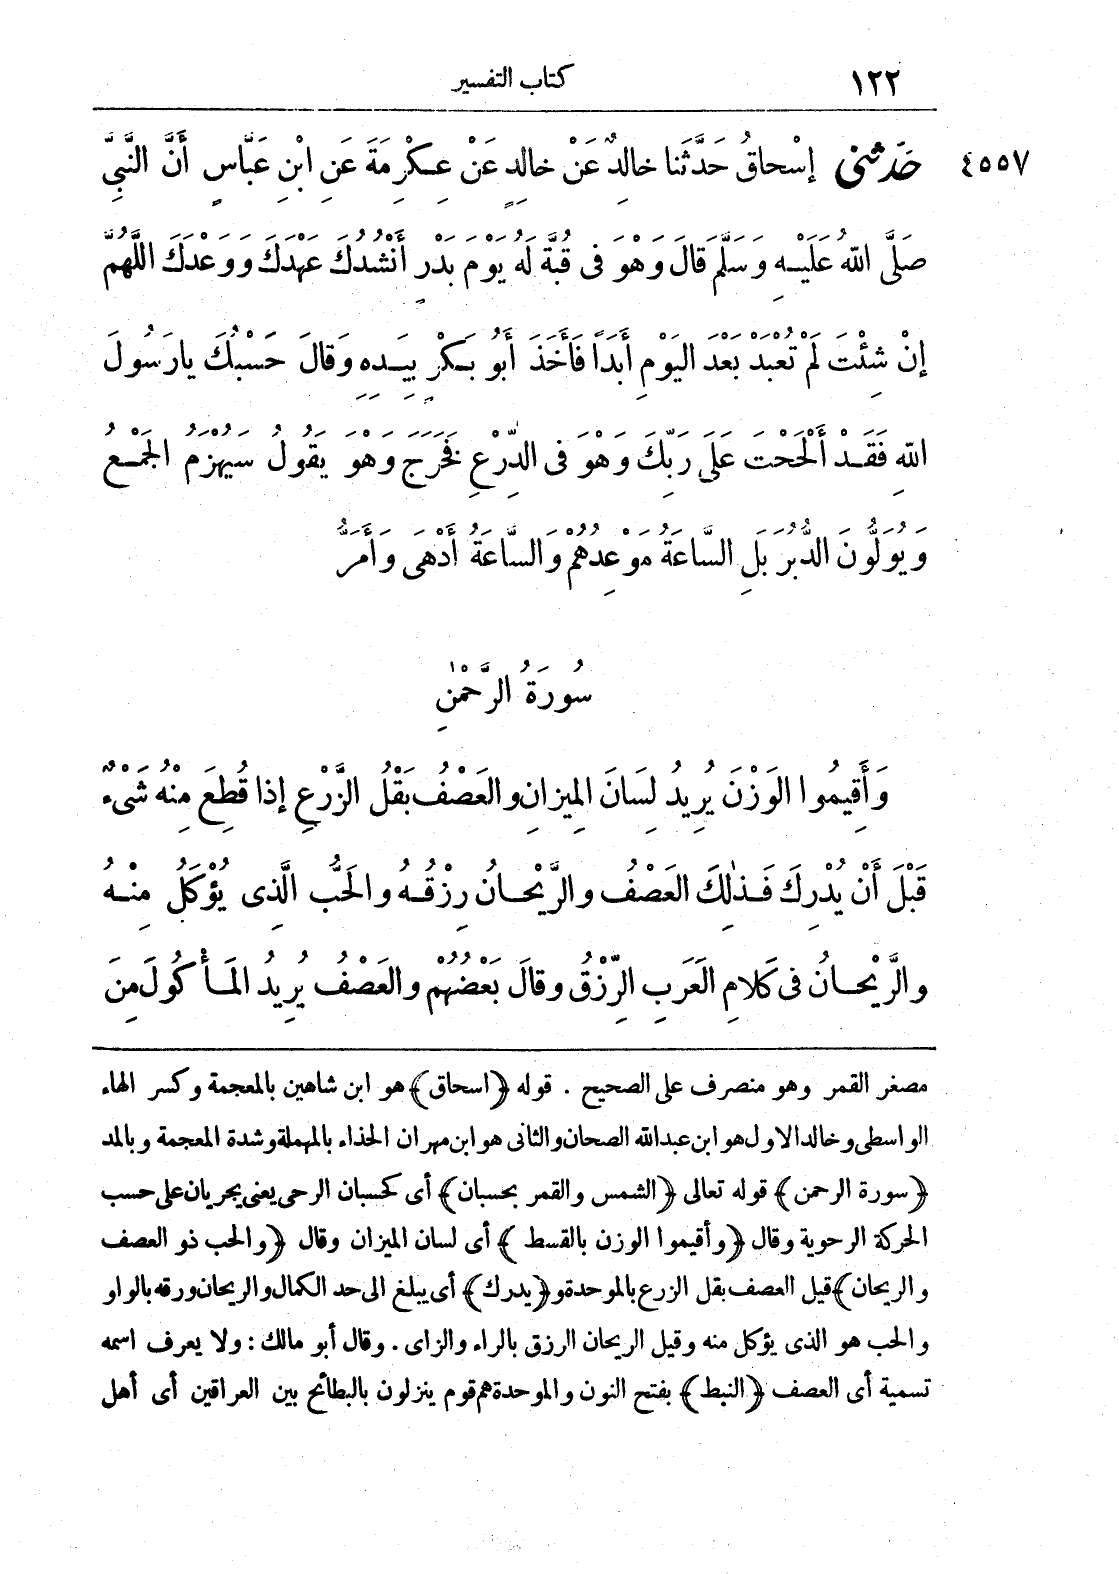 ١٢٢ كتاب التفسير
٤٥٥٧ حَدَّثَنِى إِسْحاقُ حَدَّثَنا خالِدٌ عَنْ خالِدٍ عَنْ عِكْرِمَةَ عَنِ ابْنِ عَبَّاسٍ أَنَّ النَّبِىَّ
صَلَّى اللهُ عَلَيْهِ وَسَلَّمَ قالَ وَهْوَ فى قُبَّةٍ لَهُ يَوْمَ بَدْرٍ أَنْشُدُكَ عَهْدَكَ وَوَعْدَكَ اللَّهُمَّ
إنْ شِئْتَ لَمْ تُعْبَدْ بَعْدَ اليَوْمِ أَبَداً فَأَخَذَ أَبُو بَكْرٍ بِيَدِهِ وَقالَ حَسْبُكَ يا رَسُولَ
اللهِ فَقَدْ أَلْحَحْتَ عَلَى رَبِّكَ وَهْوَ فى الدِّرْعِ فَخَرَجَ وَهْوَ يَقُولُ سَيُهْزَمُ الجَمْعُ
وَيُوَلُّونَ الدُّبُرَ بَلِ السَّاعَةُ مَوْعِدُهُمْ وَالسَّاعَةُ أَدْهَى وَأَمَرُّ
سُورَةُ الرَّحْمٰنِ
وَأَقِيمُوا الوَزْنَ يُرِيدُ لِسَانَ المِيزانِ والعَصْفُ بَقْلُ الزَّرْعِ إذا قُطِعَ مِنْهُ شَىْءٌ
قَبْلَ أَنْ يُدْرِكَ فَذٰلِكَ العَصْفُ والرَّيْحانُ رِزْقُهُ والحَبُّ الَّذِى يُؤْكَلُ مِنْهُ
والرَّيْحانُ فى كَلامِ العَرَبِ الرِّزْقُ وقالَ بَعْضُهُمْ والعَصْفُ يُرِيدُ المَأْكُولَ مِنَ
مصغر القمر وهو منصرف على الصحيح . قوله ﴿اسحاق﴾ هو ابن شاهين بالمعجمة وكسر الهاء
الواسطى وخالد الاول هو ابن عبدالله الصحان والثانى هو ابن مهران الحذاء بالمهملة وشدة المعجمة وبالمد
﴿سورة الرحمن﴾ قوله تعالى ﴿الشمس والقمر بحسبان﴾ أى كحسبان الرحى يعنى يجريان على حسب
الحركة الرحوية وقال ﴿وأقيموا الوزن بالقسط﴾ أى لسان الميزان وقال ﴿والحب ذو العصف
والريحان﴾ قيل العصف بقل الزرع بالموحدة و﴿يدرك﴾ أى يبلغ الى حد الكمال والريحان ورقه بالواو
والحب هو الذى يؤكل منه وقيل الريحان الرزق بالراء والزاى . وقال أبو مالك : ولا يعرف اسمه
تسمية أى العصف ﴿النبط﴾ بفتح النون والموحدة هم قوم ينزلون بالبطائح بين العراقين أى أهل